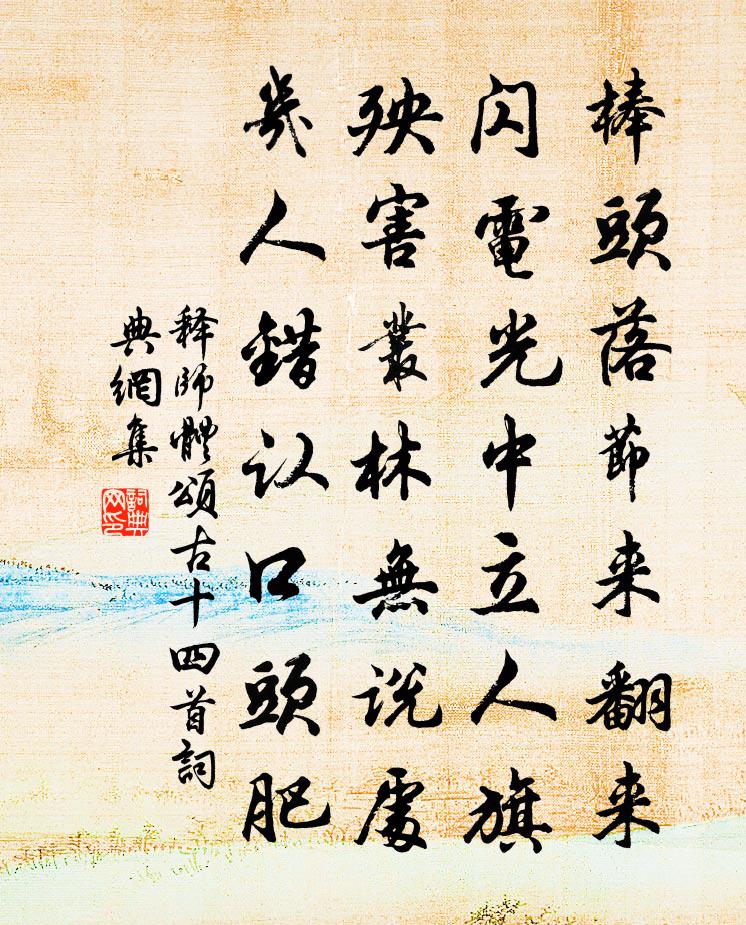 棒頭落節来翻来
閃電光中立人旗
殃害叢林無説處
幾人錯认口頭肥
释師體頌古十四首詞
典網集
詞典
网印